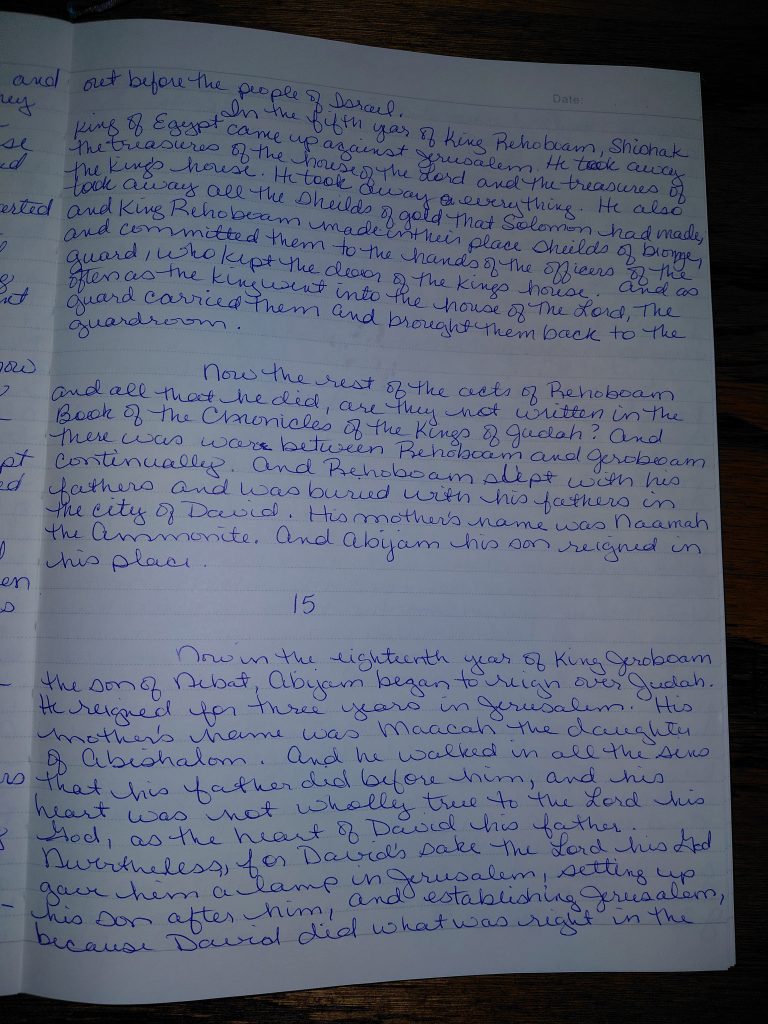 Date:
out before the people of Israel.
In the fifth year of King Rehoboam, Shishak
King of Egypt came up against Jerusalem. He took away
the treasures of the house of the Lord and the treasures of
the kings house. He took away everything. He also
took away all the sheilds of gold that Solomon had made,
and King Rehoboam made in their place sheilds of bronze,
and committed them to the hands of the officers of the
guard, who kept the door of the kings house. And as
often as the king went into the house of the Lord, the
guard carried them and brought them back to the
guardroom.
Now the rest of the acts of Rehoboam
and all that he did, are they not written in the
Book of the Chronicles of the Kings of Judah? And
there was war between Rehoboam and Jeroboam
continually. And Rehoboam slept with his
fathers and was buried with his fathers in
the city of David. His mother's name was Naamah
the Ammonite. And Abijam his son reigned in
his place.
15
Now in the eighteenth year of King Jeroboam
the son of Nebat, Abijam began to reign over Judah.
He reigned for three years in Jerusalem. His
mother's name was Maacah the daughter
of Abishalom. And he walked in all the sins
that his father did before him, and his
heart was not wholly true to the Lord his
God, as the heart of David his father.
Nevertheless, for David's sake the Lord his God
gave him a lamp in Jerusalem, setting up
his son after him, and establishing Jerusalem,
because David did what was right in the